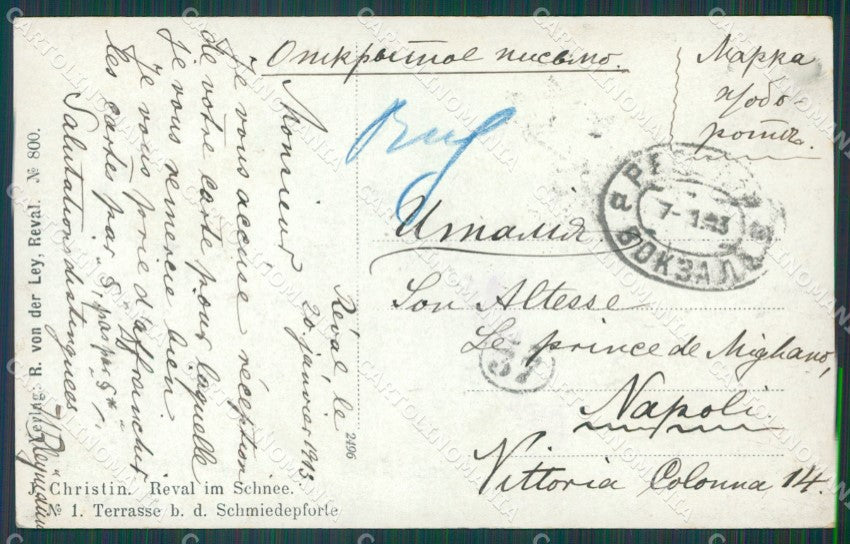 Открытое письмо.
Марка
на обо-
ротѣ.
Италия
Son Altesse
Le prince de Migliano,
Napoli
Vittoria Colonna 14.
РЕ
ВОКЗАЛЪ
7-1
37
Réval, le
20 janvier 1913.
Monsieur
Je vous accuse réception
de votre carte pour laquelle
je vous remercie bien
Je vous prie d'affranchir
les cartes par
Salutations distinguées
Verlag: R. von der Ley, Reval. № 800.
2496
J. Christin. Reval im Schnee.
№ 1. Terrasse b. d. Schmiedepforte
CARTOLINOMANIA